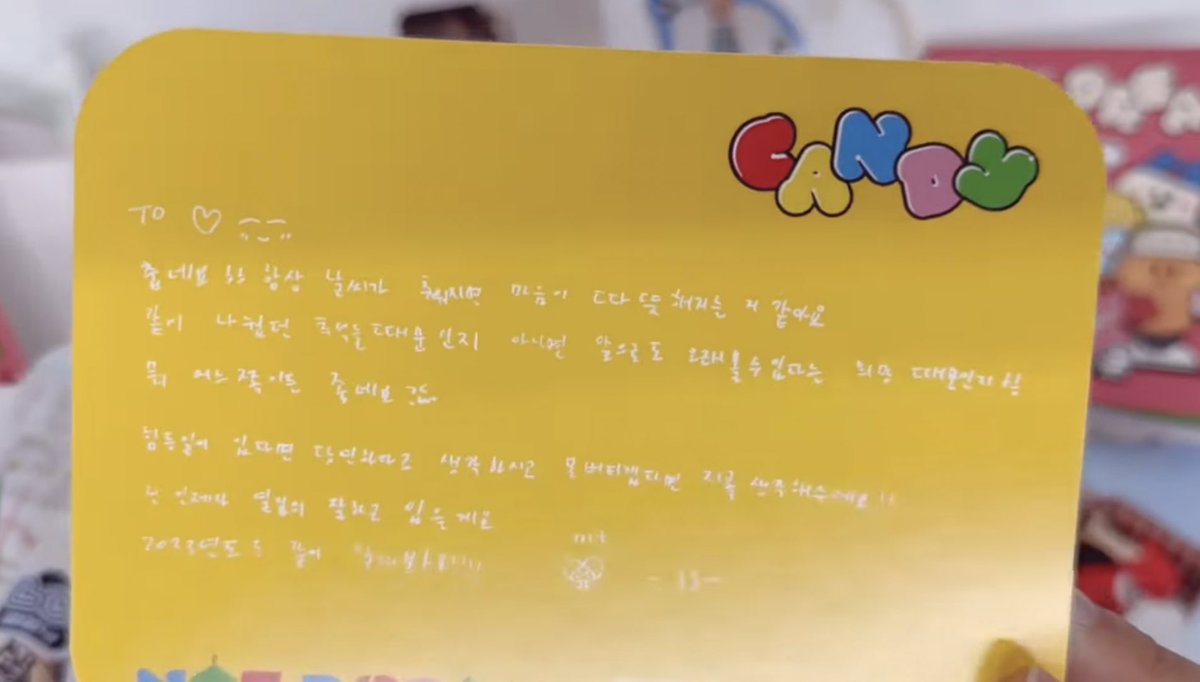 CANDY
TO ♡
춥네요 항상 날씨가 추워지면 마음이 따뜻해지는 거 같아요
같이 나눴던 추억들 때문인지 아니면 앞으로도 오래 볼 수 있다는 희망 때문인지
뭐 어느 쪽이든 좋네요
힘든 일이 있다면 당연하다고 생각하시고 못 버티겠다면 저를 생각해주세요!!
전 언제나 열심히 잘하고 있을게요
2023년도 같이
NCT DREAM